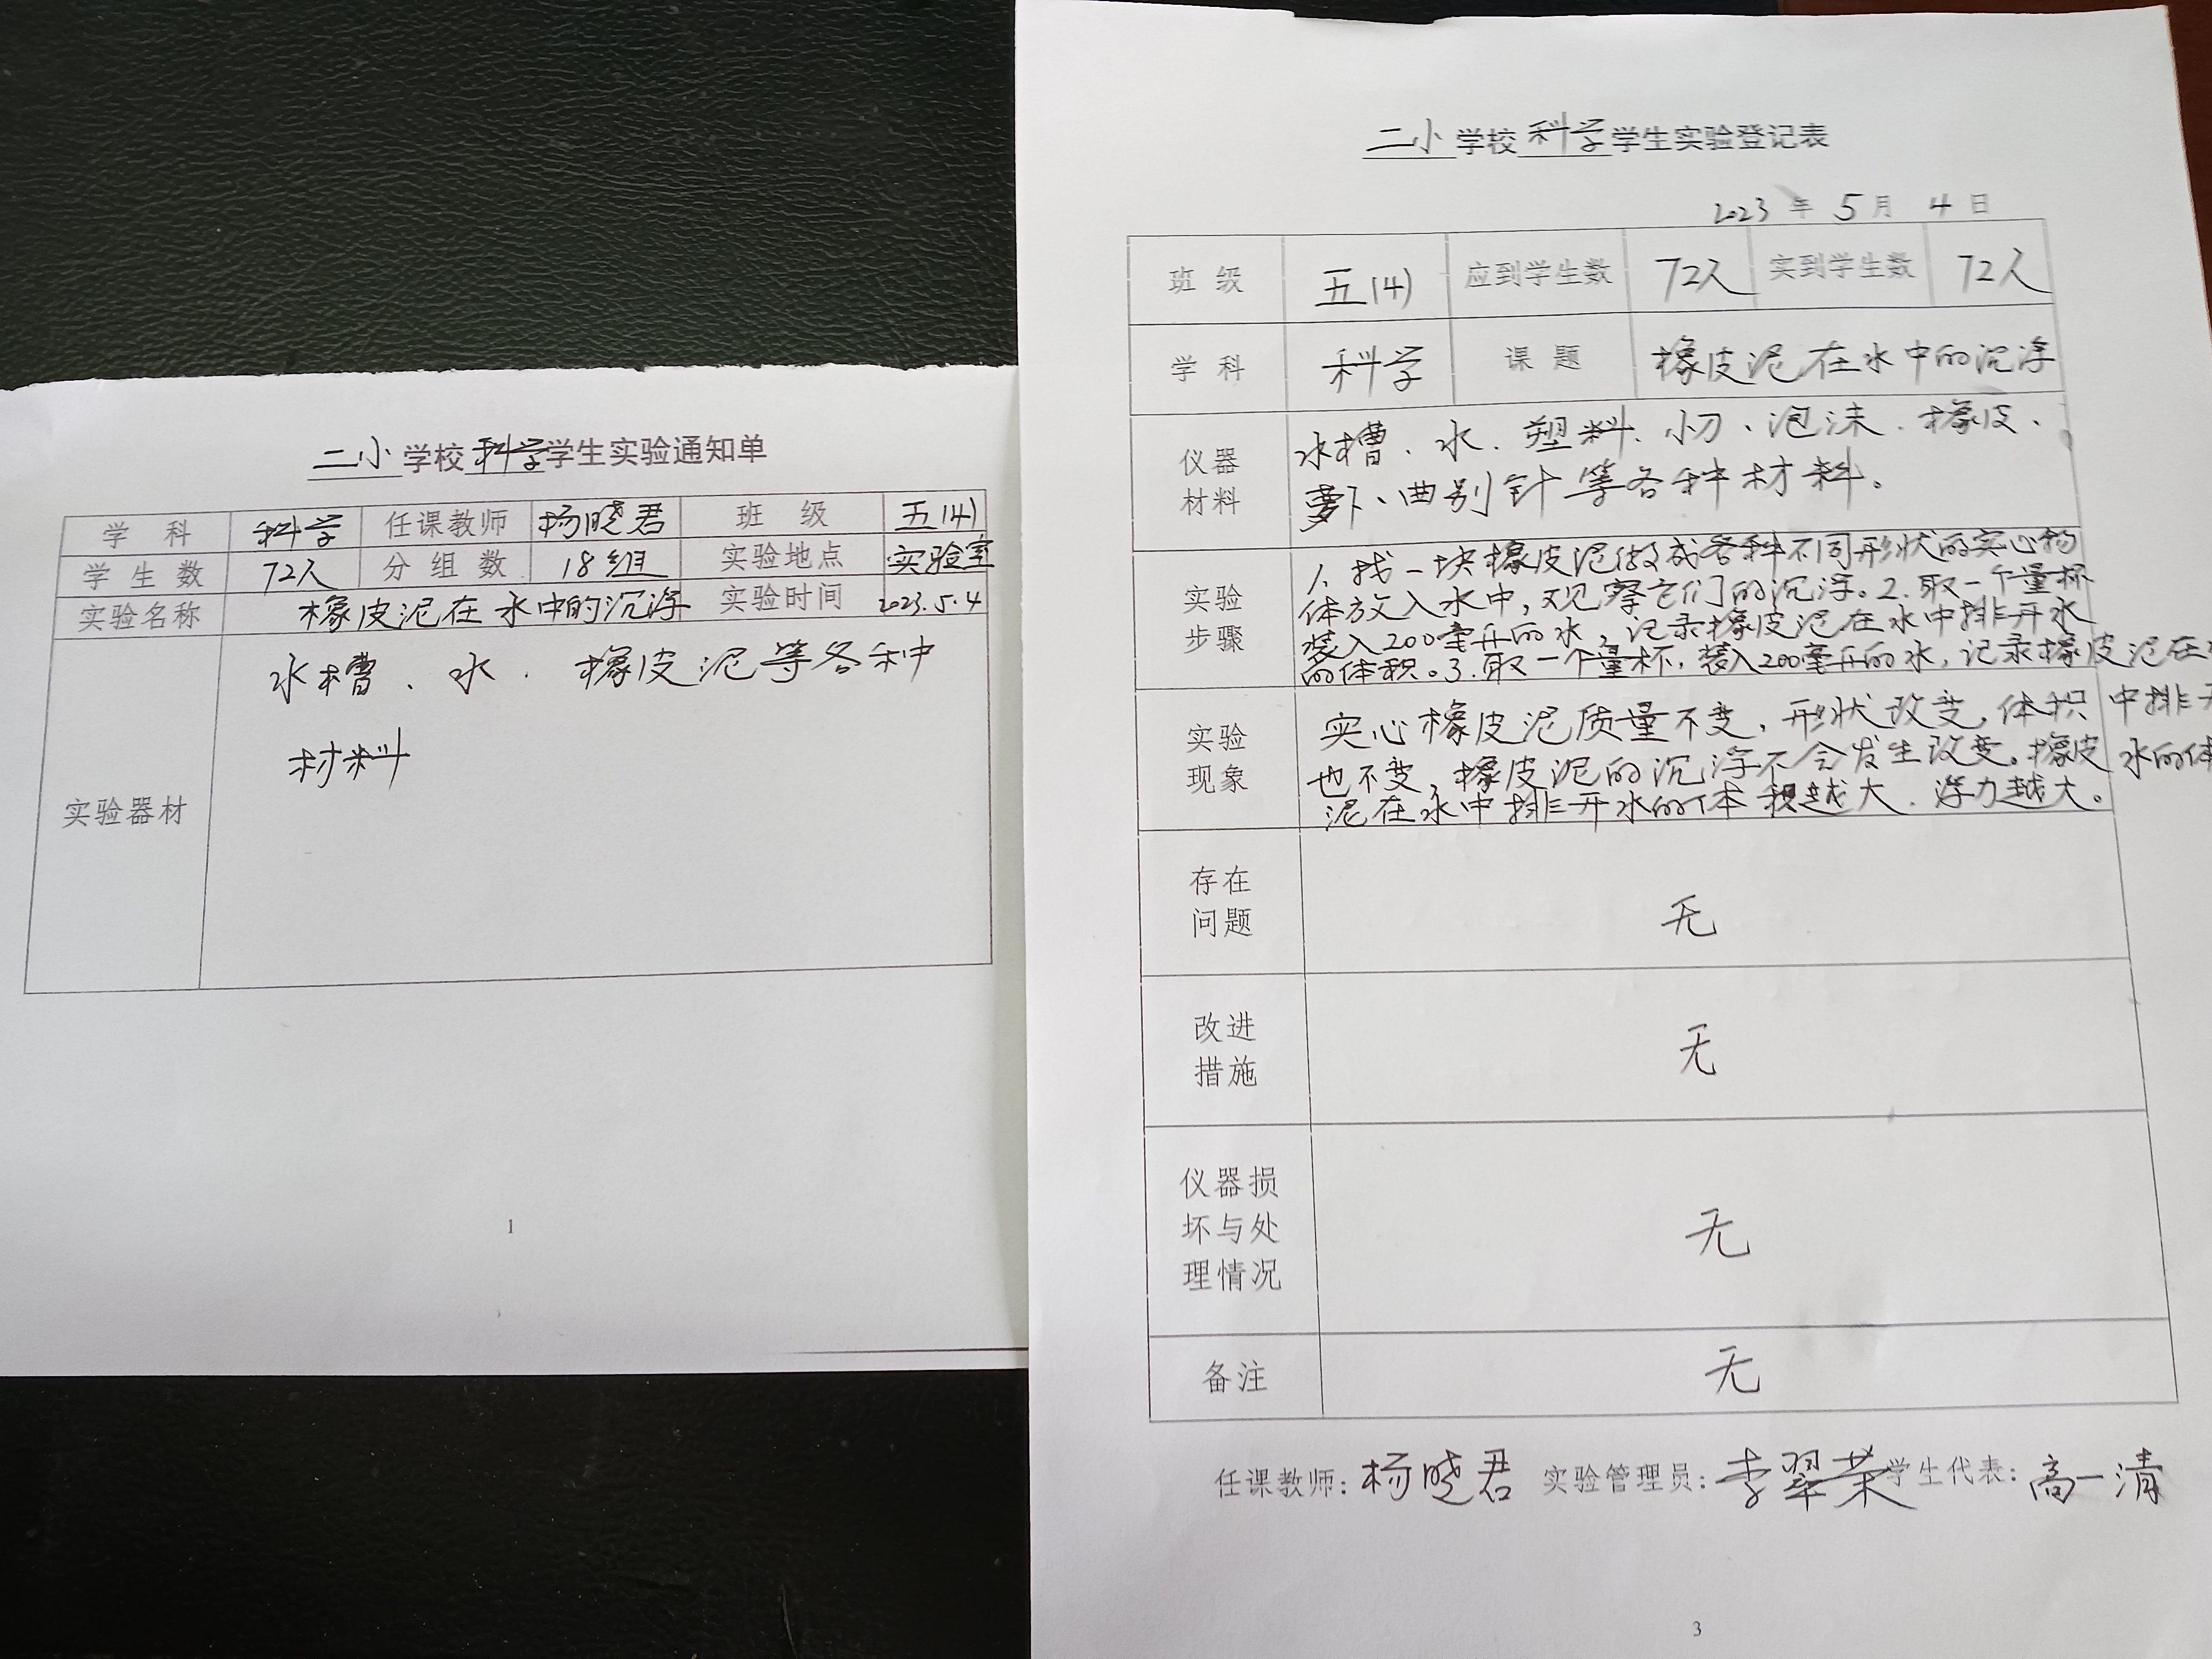 二小学校科学学生实验通知单
学 科 科学 任课教师 杨晓君 班 级 五(4)
学生数 72人 分组数 18组 实验地点 实验室
实验名称 橡皮泥在水中的沉浮 实验时间 2023.5.4
实验器材 水槽、水、橡皮泥等各种
材料
1
二小学校科学学生实验登记表
2023年5月4日
班级 五(4) 应到学生数 72人 实到学生数 72人
学科 科学 课题 橡皮泥在水中的沉浮
仪器
材料
水槽、水、塑料、小刀、泡沫、橡皮、
萝卜、曲别针等各种材料。
实验
步骤
1、找一块橡皮泥做成各种不同形状的实心物
体放入水中,观察它们的沉浮。2.取一个量杯
装入200毫升的水,记录橡皮泥在水中排开水
的体积。3.取一个量杯,装入200毫升的水,记录橡皮泥在
中排开
水的体
实验
现象
实心橡皮泥质量不变,形状改变,体积
也不变,橡皮泥的沉浮不会发生改变。橡皮
泥在水中排开水的体积越大、浮力越大。
存在
问题
无
改进
措施
无
仪器损
坏与处
理情况
无
备注 无
任课教师:杨晓君 实验管理员:李翠荣 学生代表:高一清
3